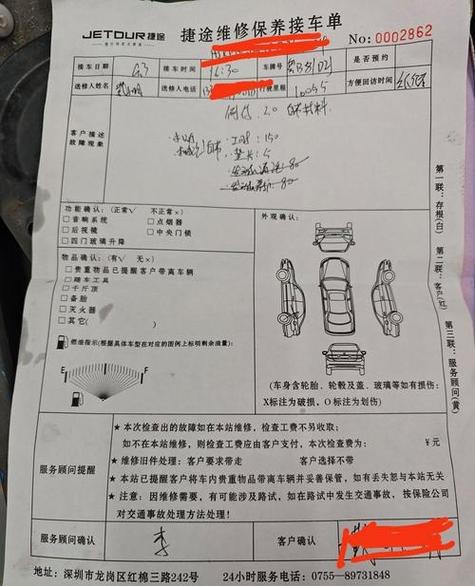 JETOUR捷途 捷途维修保养接车单
No:0002862
接车日期 6.3 接车时间 16:30 车牌号 是否预约
送修人姓名 送修人电话 行驶里程 10055 方便回访时间
客户描述
故障现象
工时:150
垫片:5
功能确认:(正常√ 不正常×)
□音响系统 □点烟器
□后视镜 □中央门锁
□四门玻璃升降
外观确认:
物品确认:(有√ 无×)
□贵重物品已提醒客户带离车辆
□随车工具
□千斤顶
□备胎
□灭火器
□其它( )
燃油指示(根据具体车型在对应的图例上标明剩余油量):
E F
(车身含轮胎、轮毂及盖、玻璃等如有损伤:
X标注为破损,O标注为划伤)
服务顾问提醒
★本次检查出的故障如在本站维修,检查工费不另收取;
如不在本站维修,则检查工费应由客户支付,本次检查费为: ¥元
★维修旧件处理:客户要求带走 客户选择不带
★本站已提醒客户将车内贵重物品带离车辆并妥善保管,如有丢失恕与本站无关
★注意:因维修需要,有可能涉及路试,如在路试中发生交通事故,按保险公司
对交通事故处理方法处理!
服务顾问确认 李 客户确认
地址:深圳市龙岗区红棉三路242号 24小时服务电话:0755-89731848
第一联:存根(白)
第二联:客户(红)
第三联:服务顾问(黄)